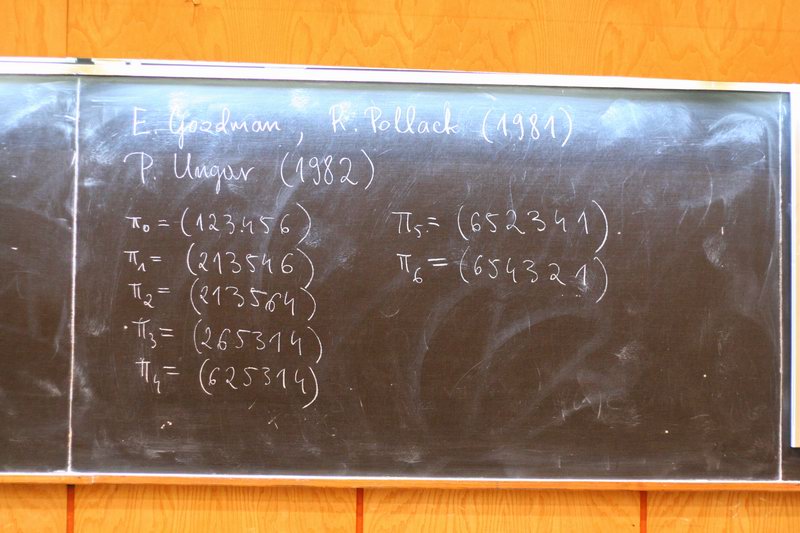 E. Goodman, R. Pollack (1981)
P. Ungar (1982)
π₀ = (123456)
π₁ = (213546)
π₂ = (213564)
π₃ = (265314)
π₄ = (625314)
π₅ = (652341).
π₆ = (654321)